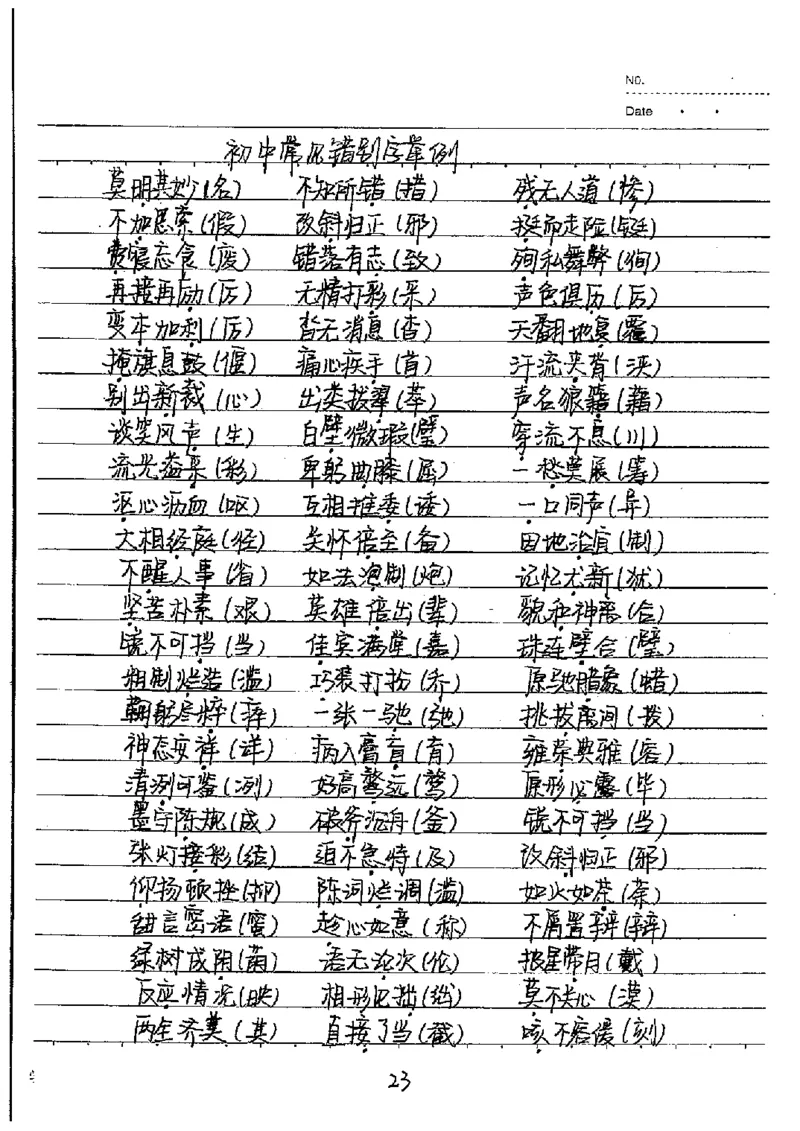 NO.
Date
初中常见错别字举例
莫明其妙(名) 不知所错(措) 残无人道(惨)
不加思索(假) 改斜归正(邪) 挺而走险(铤)
费寝忘食(废) 错落有志(致) 殉私舞弊(徇)
再接再励(厉) 无精打彩(采) 声色俱历(厉)
变本加利(厉) 沓无消息(杳) 天翻地复(覆)
掩旗息鼓(偃) 痛心疾手(首) 汗流夹背(浃)
别出新裁(心) 出类拔翠(萃) 声名狼籍(藉)
谈笑风声(生) 白壁微瑕(璧) 穿流不息(川)
流光溢采(彩) 卑躬曲膝(屈) 一愁莫展(筹)
沤心沥血(呕) 互相推委(诿) 一口同声(异)
大相经庭(径) 关怀倍至(备) 因地治宜(制)
不醒人事(省) 如法泡制(炮) 记忆尤新(犹)
坚苦朴素(艰) 英雄倍出(辈) 貌和神离(合)
锐不可挡(当) 佳宾满堂(嘉) 珠连壁合(璧)
粗制烂造(滥) 巧装打扮(乔) 原驰腊象(蜡)
鞠躬尽粹(瘁) 一张一驰(弛) 挑拔离间(拨)
神态安祥(详) 病入膏盲(肓) 雍荣典雅(容)
清洌可鉴(冽) 好高鳌远(骛) 原形必露(毕)
墨守陈规(成) 破斧沉舟(釜) 锐不可挡(当)
张灯接彩(结) 迫不急待(及) 改斜归正(邪)
仰扬顿挫(抑) 陈词烂调(滥) 如火如茶(荼)
甜言密语(蜜) 趁心如意(称) 不屑置辨(辩)
绿树成阴(荫) 语无论次(伦) 披星带月(戴)
反应情况(映) 相形见拙(绌) 莫不关心(漠)
两全济美(其) 直接了当(截) 咳不容缓(刻)
23